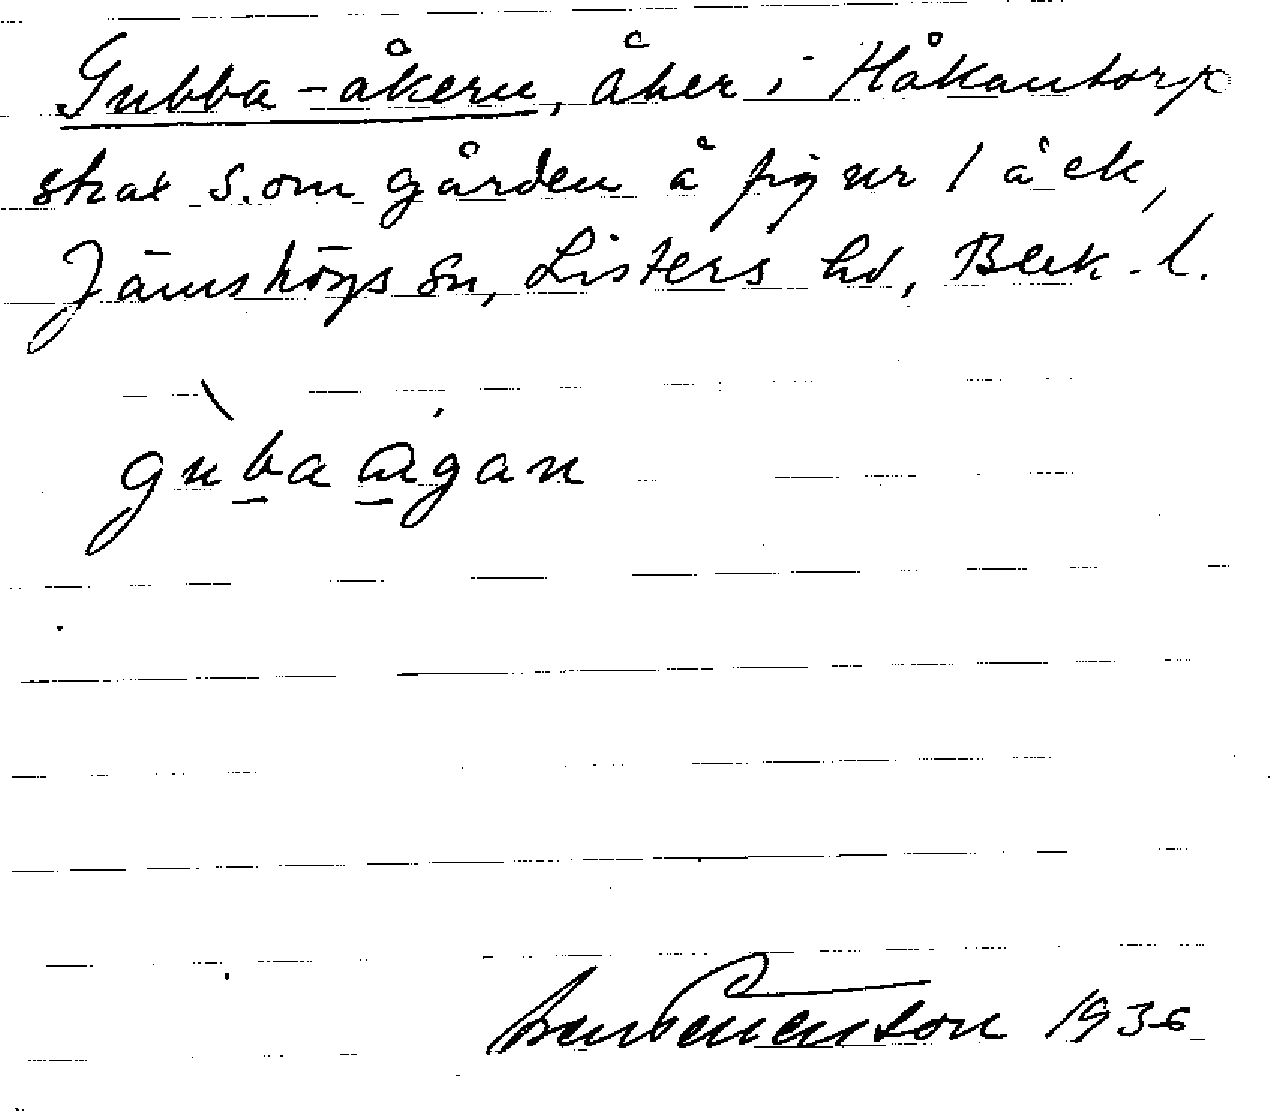 Gubba-åkern, åker i Håkantorp
strax S. om gården å figur 1 å ek,
Jämshögs sn, Listers hd, Blek. l.
guba ågan
1936